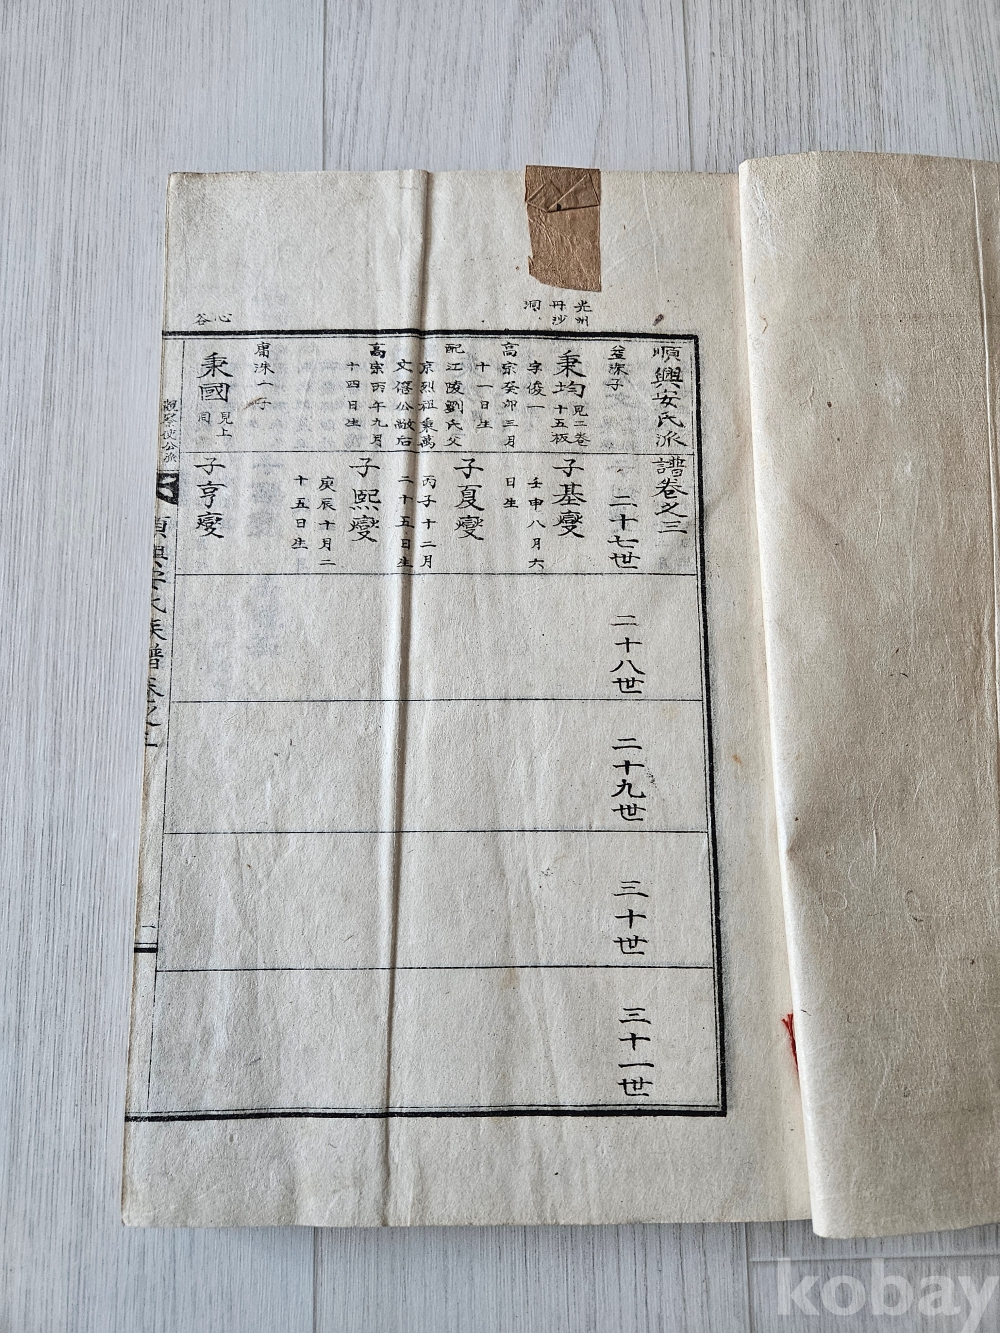 順興安氏派譜卷之三
二十七世
二十八世
二十九世
三十世
三十一世
光州
丹沙
洞
洙子
秉均 見二卷
十五板
字俊一
高宗癸卯三月
十一日生
配江陵劉氏父
京烈祖秉萬
文僖公敞后
高宗丙午九月
十四日生
子基燮
壬申八月六
日生
子夏燮
丙子十二月
二十五日生
子熙燮
庚辰十月二
十五日生
心
谷
庸洙一子
秉國 見上
同
子亨燮
觀察使公派
順興安氏族譜卷之三
一
kobay